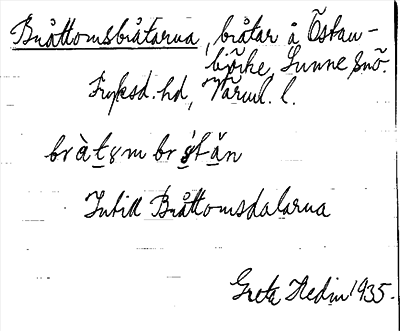 Bråttomsbråtarna, bråtar å Östan-
björke, Sunne snö.
Fryksd. hd, Värml. l.
bràtsm brs̀tän
Intill Bråttomsdalarna
Greta Hedin 1935.